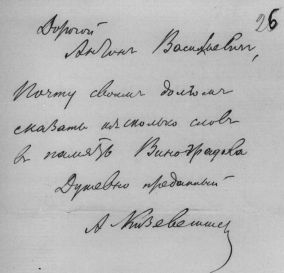 26
Дорогой
Антонъ Васильевичъ,
Почту своимъ долгомъ
сказать нѣсколько словъ
въ память Виноградова
Душевно преданный
А Кизеветтеръ